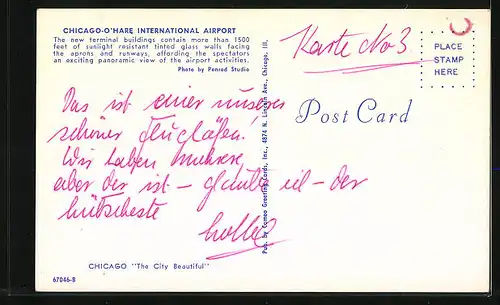 CHICAGO-O'HARE INTERNATIONAL AIRPORT
The new terminal buildings contain more than 1500
feet of sunlight resistant tinted glass walls facing
the aprons and runways, affording the spectators
an exciting panoramic view of the airport activities.
Photo by Penrod Studio
Das ist einer unserer
schöner Flughäfen.
Wir haben mehrere,
aber der ist – glaube ich – der
hübscheste
CHICAGO "The City Beautiful"
67046-B
Pub. by Cameo Greeting Cards, Inc., 4874 N. Lincoln Ave., Chicago, Ill.
Karte No 3
PLACE
STAMP
HERE
Post Card